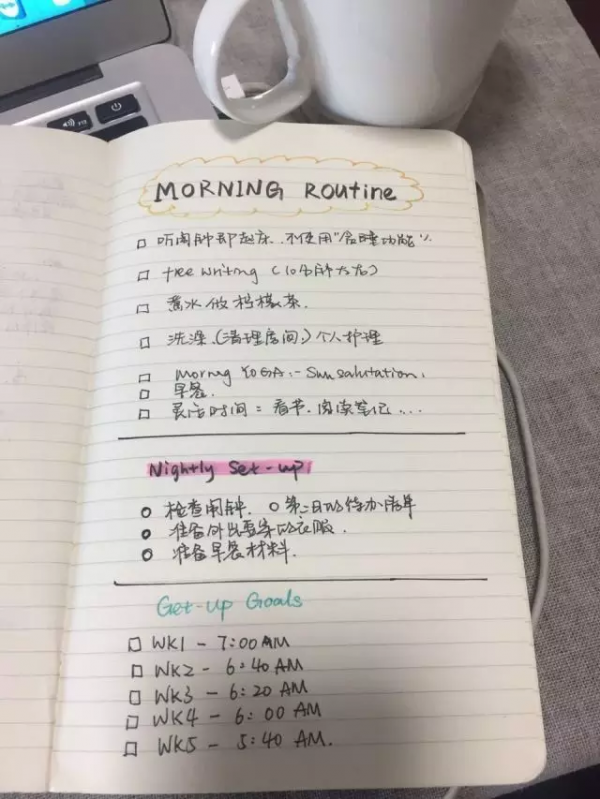 MORNING Routine
□ 听闹钟即起床. 不使用"贪睡功能".
□ free writing (10分钟左右)
□ 煮水做柠檬茶.
□ 洗澡.(清理房间.) 个人护理
□ Morning YOGA. - Sun salutation.
□ 早餐.
□ 灵活时间 = 看书. 阅读笔记 ...
Nightly Set-up
○ 检查闹钟. ○ 第二日的待办清单
○ 准备外出要穿的衣服.
○ 准备早餐材料.
Get-up Goals
□ WK1 - 7:00 AM
□ WK2 - 6:40 AM
□ WK3 - 6:20 AM
□ WK4 - 6:00 AM
□ WK5 - 5:40 AM.